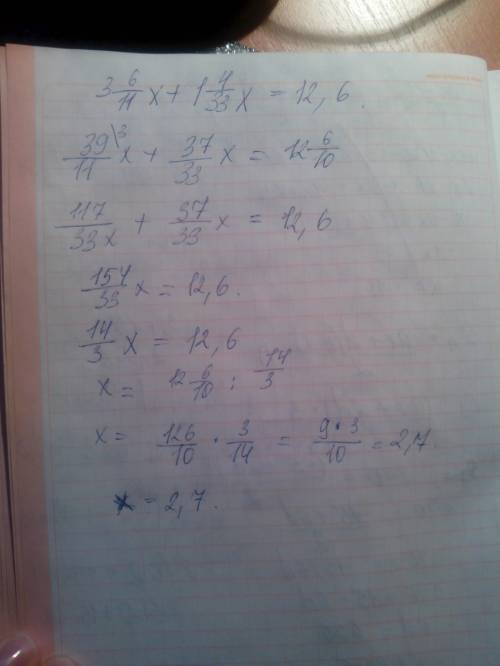 3 6/11 x + 1 4/33 x = 12,6.
39\3/11 x + 37/33 x = 12 6/10
117/33x + 37/33 x = 12,6
154/33 x = 12,6.
14/3 x = 12,6
x = 12 6/10 : 14/3
x = 126/10 · 3/14 = 9·3/10 = 2,7.
x = 2,7.